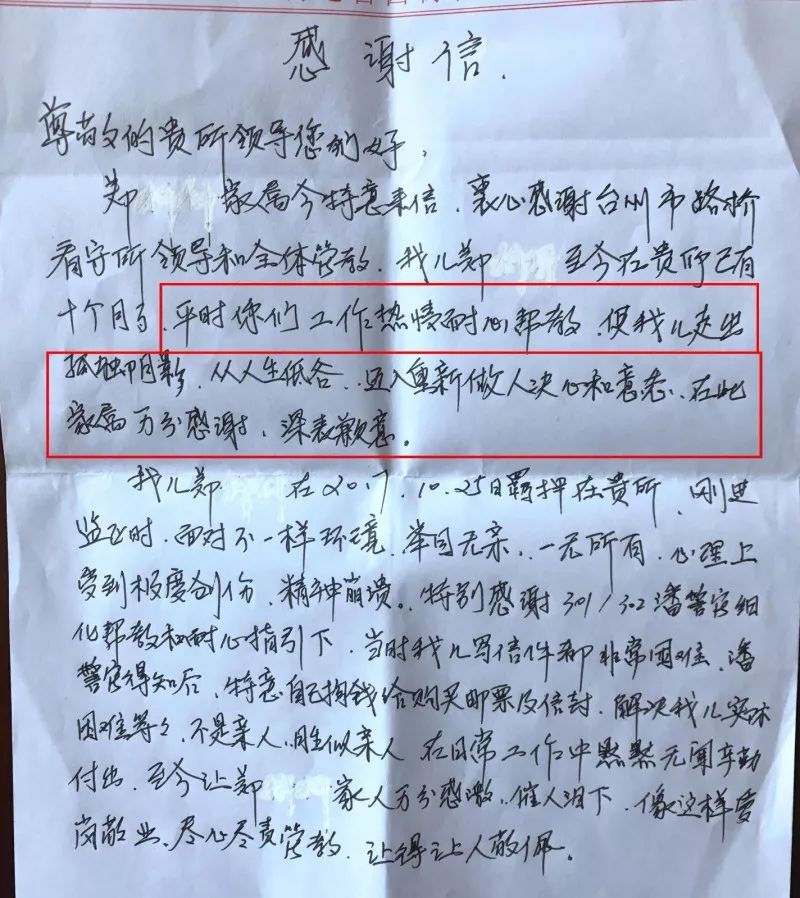 感谢信.
尊敬的贵所领导您们好,
郑 家属今特意来信、衷心感谢台州市路桥
看守所领导和全体管教、我儿郑 至今在贵所已有
十个月了、平时你们工作热情耐心帮教、使我儿走出
孤独阴影、从人生低谷、迈入重新做人决心和意志、在此
家属万分感谢、深表歉意。
我儿郑 在2017.10.25日羁押在贵所、刚进
监时、面对不一样环境、举目无亲、一无所有、心理上
受到极度创伤、精神崩溃。特别感谢301/302潘警官细
化帮教和耐心指引下、当时我儿写信件都非常困难、潘
警官得知后、特意自己掏钱给购买邮票及信封、解决我儿实际
困难等等、不是亲人、胜似亲人在日常工作中默默无闻辛勤
付出、至今让郑 家人万分感激、催人泪下、像这样爱
岗敬业、尽心尽责管教、让得让人敬佩。